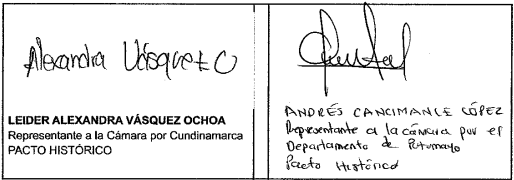 Alexandra Vásquez O
LEIDER ALEXANDRA VÁSQUEZ OCHOA
Representante a la Cámara por Cundinamarca
PACTO HISTÓRICO
ANDRÉS CANCIMANCE LÓPEZ
Representante a la cámara por el
Departamento de Putumayo
Pacto Histórico